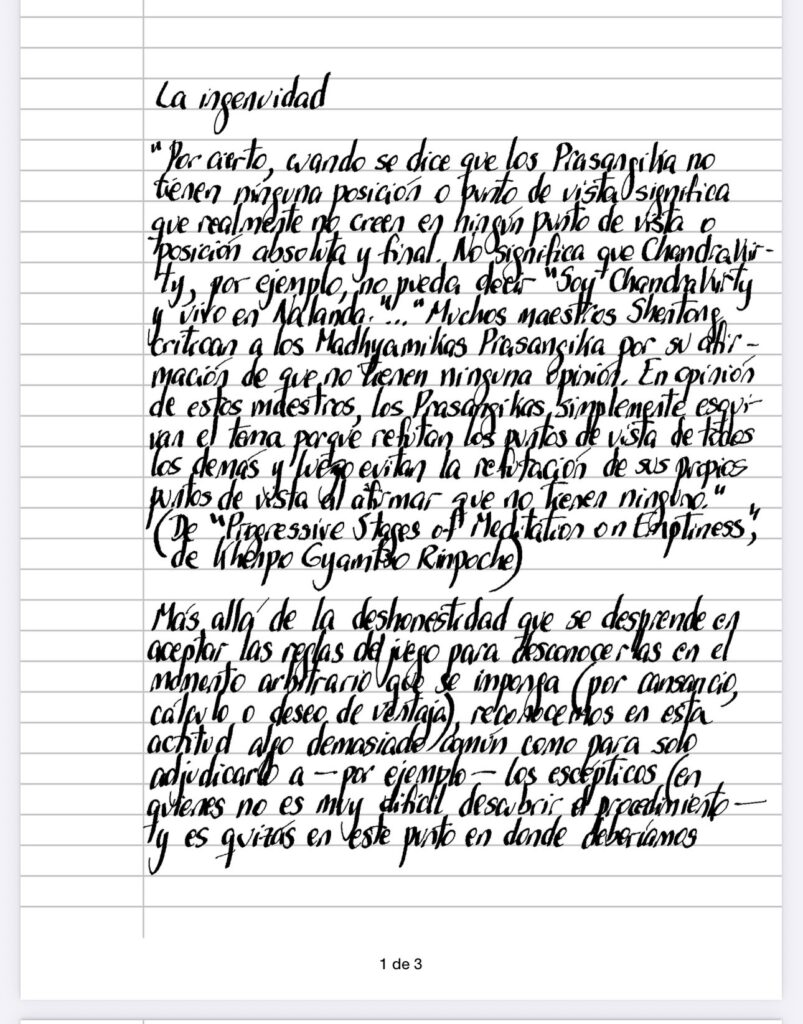 La ingenuidad
"Por cierto, cuando se dice que los Prasangika no
tienen ninguna posición o punto de vista significa
que realmente no creen en ningún punto de vista o
posición absoluta y final. No significa que ChandraKir-
ty, por ejemplo, no pueda decir "Soy ChandraKirty
y vivo en Nallanda." "..." Muchos maestros Shentong
critican a los Madhyamikas Prasangika por su afir-
mación de que no tienen ninguna opinión. En opinión
de estos maestros, los Prasangikas simplemente esqui-
van el tema porque refutan los puntos de vista de todos
los demás y luego evitan la refutación de sus propios
puntos de vista al afirmar que no tienen ninguno."
(De "Progressive Stages of Meditation on Emptiness",
de Khenpo Gyamtso Rinpoche)
Más allá de la deshonestidad que se desprende en
aceptar las reglas del juego para desconocerlas en el
momento arbitrario que se imponga (por cansancio,
cálculo o deseo de ventaja), reconocemos en esta
actitud algo demasiado común como para solo
adjudicarlo a — por ejemplo — los escépticos (en
quienes no es muy difícil descubrir el procedimiento —
y es quizás en este punto en donde deberíamos
1 de 3